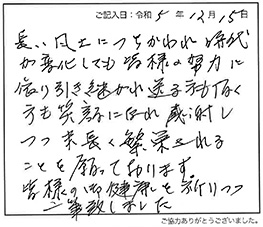 ご記入日：令和 5 年 12 月 15 日
長い風土につちかわれ時代
が変化しても皆様の努力に
依り引き継がれ送る方頂く
方も笑顔に溢れ感謝し
つつ末長く繁栄される
ことを願っております。
皆様の御健康を祈りつつ
一筆致しました
ご協力ありがとうございました。